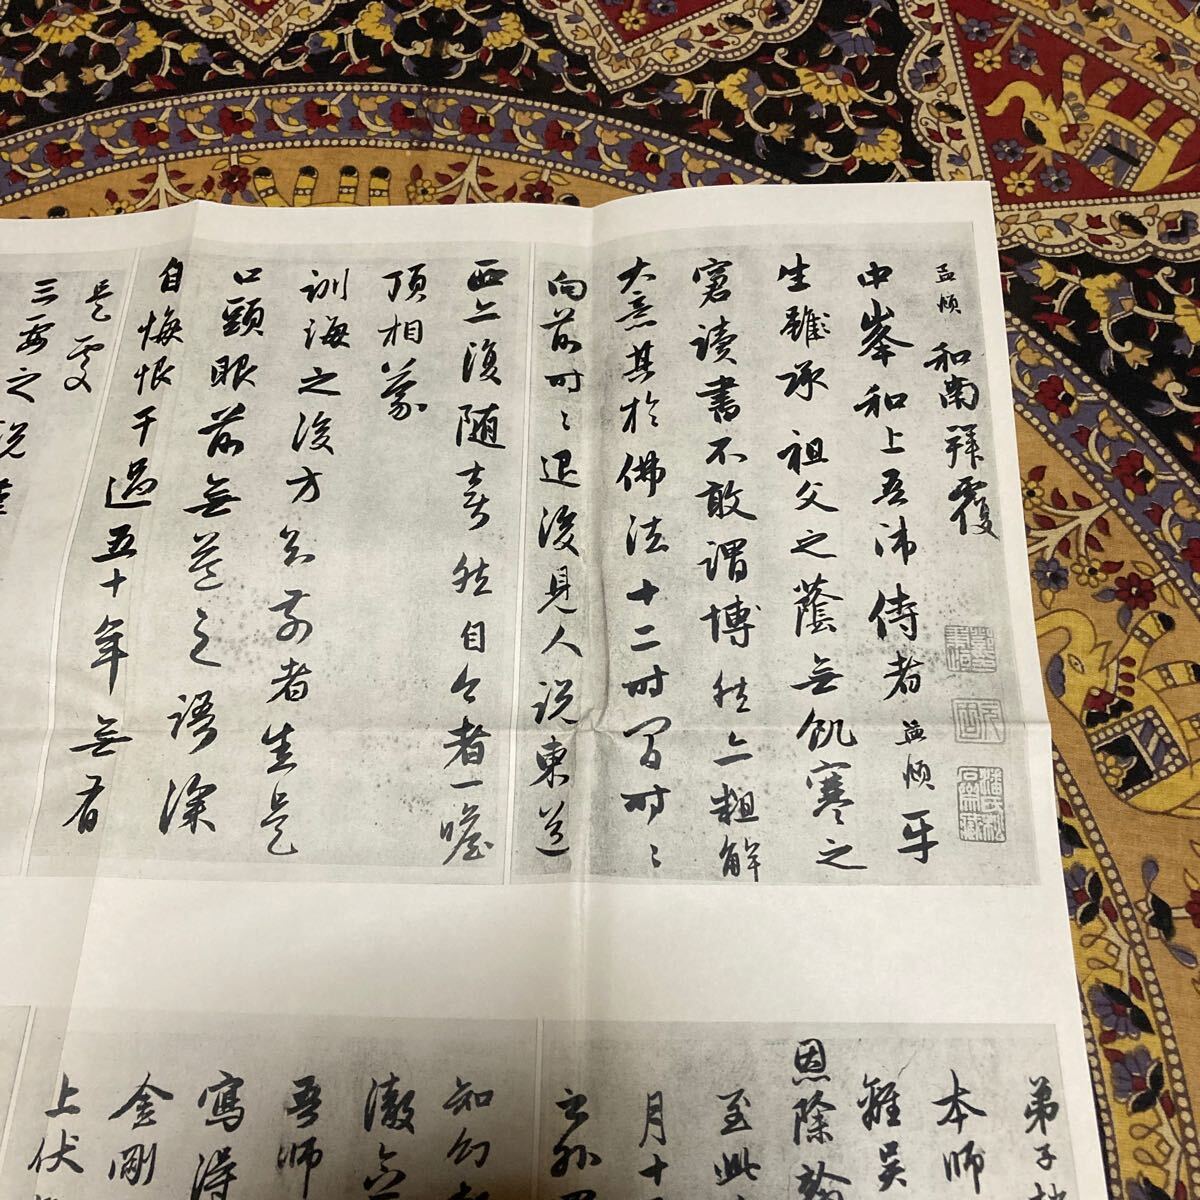 孟頫和南拜覆
中峯和上吾師侍者孟頫平
生雖承祖父之蔭無飢寒之
窘讀書不敢謂博然亦粗解
大意其於佛法十二時間時〻
向前時〻退後見人說東道
西亦復隨喜然自今者一瞻
頂相蒙
訓誨之後方知前者生是
口頭眼前無益之語深
自悔恨干過五十年無有
是處
三要之說
弟子
本師
雖吳
恩除翰
至此
月十
知幻
激
吾師
寫得
金剛
上伏